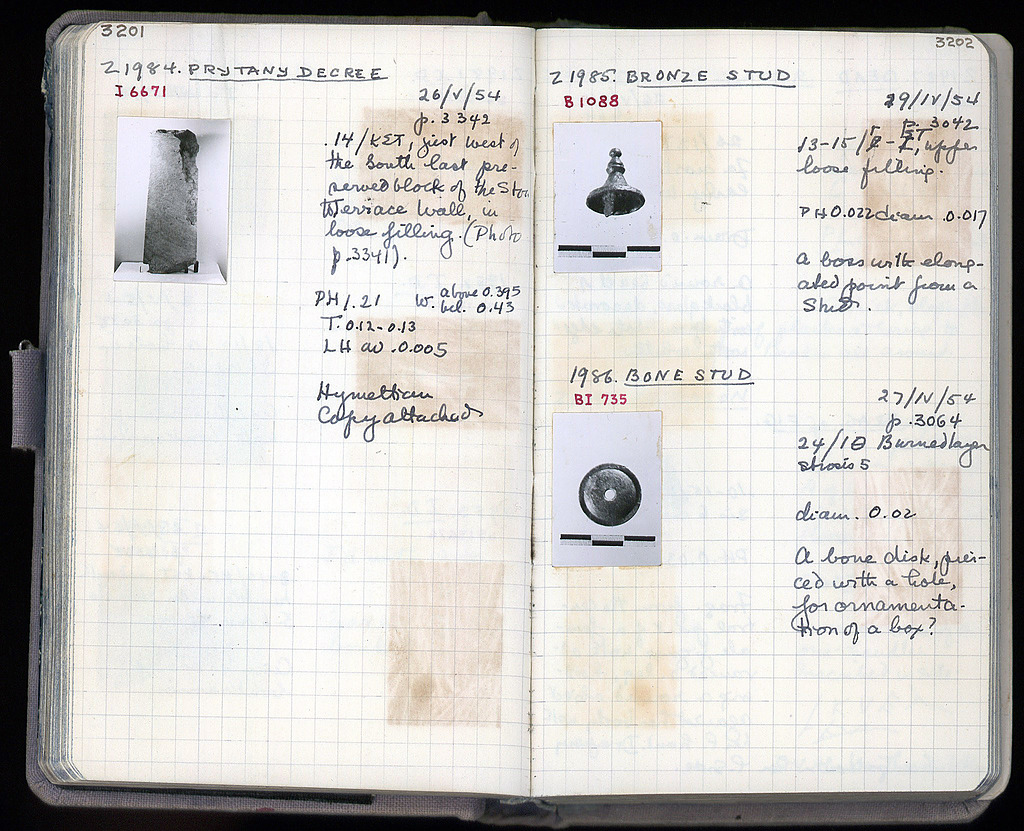 3201
Z 1984. PRYTANY DECREE
I 6671
26/V/54
p. 3342
.14/ΚΣΤ, just west of
the South last pre-
served block of the Stoa
Terrace Wall, in
loose filling. (Photo
p. 3341).
PH 1.21 W. above 0.395
bel. 0.43
T. 0.12-0.13
LH av. 0.005
Hymettian
Copy attached
3202
Z 1985. BRONZE STUD
B 1088
29/IV/54
p. 3042
13-15/ upper
loose filling.
PH 0.022 diam. 0.017
a boss with elong-
ated point from a
Stud.
1986. BONE STUD
BI 735
27/IV/54
p. 3064
24/ΙΘ Burned layer
strosis 5
diam. 0.02
A bone disk, pier-
ced with a hole,
for ornamenta-
tion of a box?